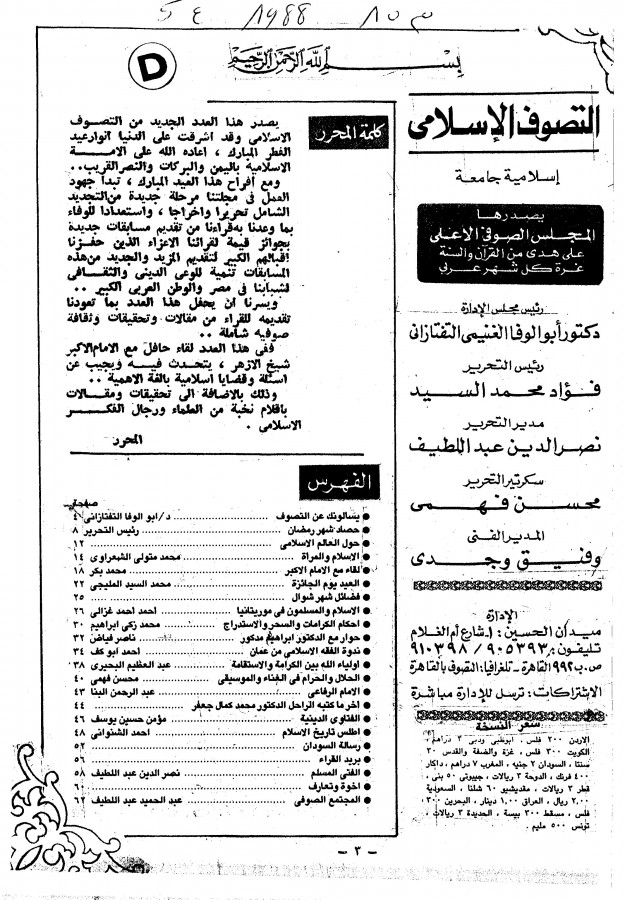 1988
D
بسم الله الرحمن الرحيم
التصوف الإسلامى
إسلامية جامعة
يصدرها
المجلس الصوفى الأعلى
على هدى من القرآن والسنة
غرة كل شهر عربى
رئيس مجلس الإدارة
دكتور أبو الوفا الغنيمى التفتازانى
رئيس التحرير
فؤاد محمد السيد
مدير التحرير
نصر الدين عبد اللطيف
سكرتير التحرير
محسن فهمى
المدير الفنى
وفيق وجدى
الإدارة
ميدان الحسين: ١ شارع أم الغلام
تليفون: ٩٠٥٣٩٣ / ٩١٠٣٩٨
ص.ب ٩٩٢ القاهرة - تلغرافيا: التصوف بالقاهرة
الاشتراكات: ترسل للإدارة مباشرة
سعر النسخة
الاردن ٣٠٠ فلس ، ابوظبى ودبى ٣ دراهم ،
الكويت ٣٠٠ فلس ، غزة والضفة والقدس ٣٠
سنتا ، السودان ٢ جنيه ، المغرب ٧ دراهم ، داكار
٤٠٠ فرنك ، الدوحة ٣ ريالات ، جيبوتى ٥٠ بنى ،
قطر ٣ ريالات ، مقديشيو ٦٠ شلنا ، السعودية
٢٫٠٠ ريال ، العراق ١٫٠٠ دينار ، البحرين ٣٠٠
فلس ، مسقط ٣٠٠ بيسة ، الحديدة ٣ ريالات ،
تونس ٥٠٠ مليم .
كلمة المحرر
يصدر هذا العدد الجديد من التصوف
الاسلامى وقد اشرقت على الدنيا انوار عيد
الفطر المبارك ، اعاده الله على الامة
الاسلامية باليمن والبركات والنصر القريب ..
ومع افراح هذا العيد المبارك ، تبدأ جهود
العمل فى مجلتنا مرحلة جديدة من التجديد
الشامل تحريرا واخراجا ، واستعدادا للوفاء
بما وعدنا به قراءنا من تقديم مسابقات جديدة
بجوائز قيمة لقرائنا الاعزاء الذين حفزنا
اقبالهم الكبير لتقديم المزيد والجديد من هذه
المسابقات تنمية للوعى الدينى والثقافى
لشبابنا فى مصر والوطن العربى الكبير ..
ويسرنا ان يحفل هذا العدد بما تعودنا
تقديمه للقراء من مقالات وتحقيقات وثقافة
صوفيه شاملة ..
ففى هذا العدد لقاء حافل مع الامام الاكبر
شيخ الازهر ، يتحدث فيه ويجيب عن
اسئلة وقضايا اسلامية بالغة الاهمية ..
وذلك بالاضافة الى تحقيقات ومقالات
باقلام نخبة من العلماء ورجال الفكر
الاسلامى .
المحرر
الفهرس
صفحة
● يسألونك عن التصوف ........ د/ ابو الوفا التفتازانى ٤
● حصاد شهر رمضان ........ رئيس التحرير ٨
● حول العالم الاسلامى ........ ١٢
● الاسلام والمراة ........ محمد متولى الشعراوى ١٤
● لقاء مع الامام الاكبر ........ محمد بكر ١٨
● العيد يوم الجائزة ........ محمد السيد المليجى ٢٢
● فضائل شهر شوال ........ ٢٥
● الاسلام والمسلمون فى موريتانيا ........ احمد احمد غزالى ٢٦
● احكام الكرامات والسحر والاستدراج ........ محمد زكى ابراهيم ٣٠
● حوار مع الدكتور ابراهيم مدكور ........ ناصر فياض ٣٢
● ندوة الفقه الاسلامى من عمان ........ احمد ابو كف ٣٤
● اولياء الله بين الكرامة والاستقامة ........ عبد العظيم البحيرى ٣٨
● الحلال والحرام فى الغناء والموسيقى ........ محسن فهمى ٤٠
● الامام الرفاعى ........ عبد الرحمن البنا ٤٣
● اخر ما كتبه الراحل الدكتور محمد كمال جعفر ........ ٤٤
● الفتاوى الدينية ........ مؤمن حسين يوسف ٤٦
● اطلس تاريخ الاسلام ........ احمد الشنوانى ٤٨
● رسالة السودان ........ ٥٢
● بريد القراء ........ ٥٦
● الفتى المسلم ........ نصر الدين عبد اللطيف ٥٨
● اخوة وتعارف ........ ٦٠
● المجتمع الصوفى ........ عبد الحميد عبد اللطيف ٦٢
- ٣ -